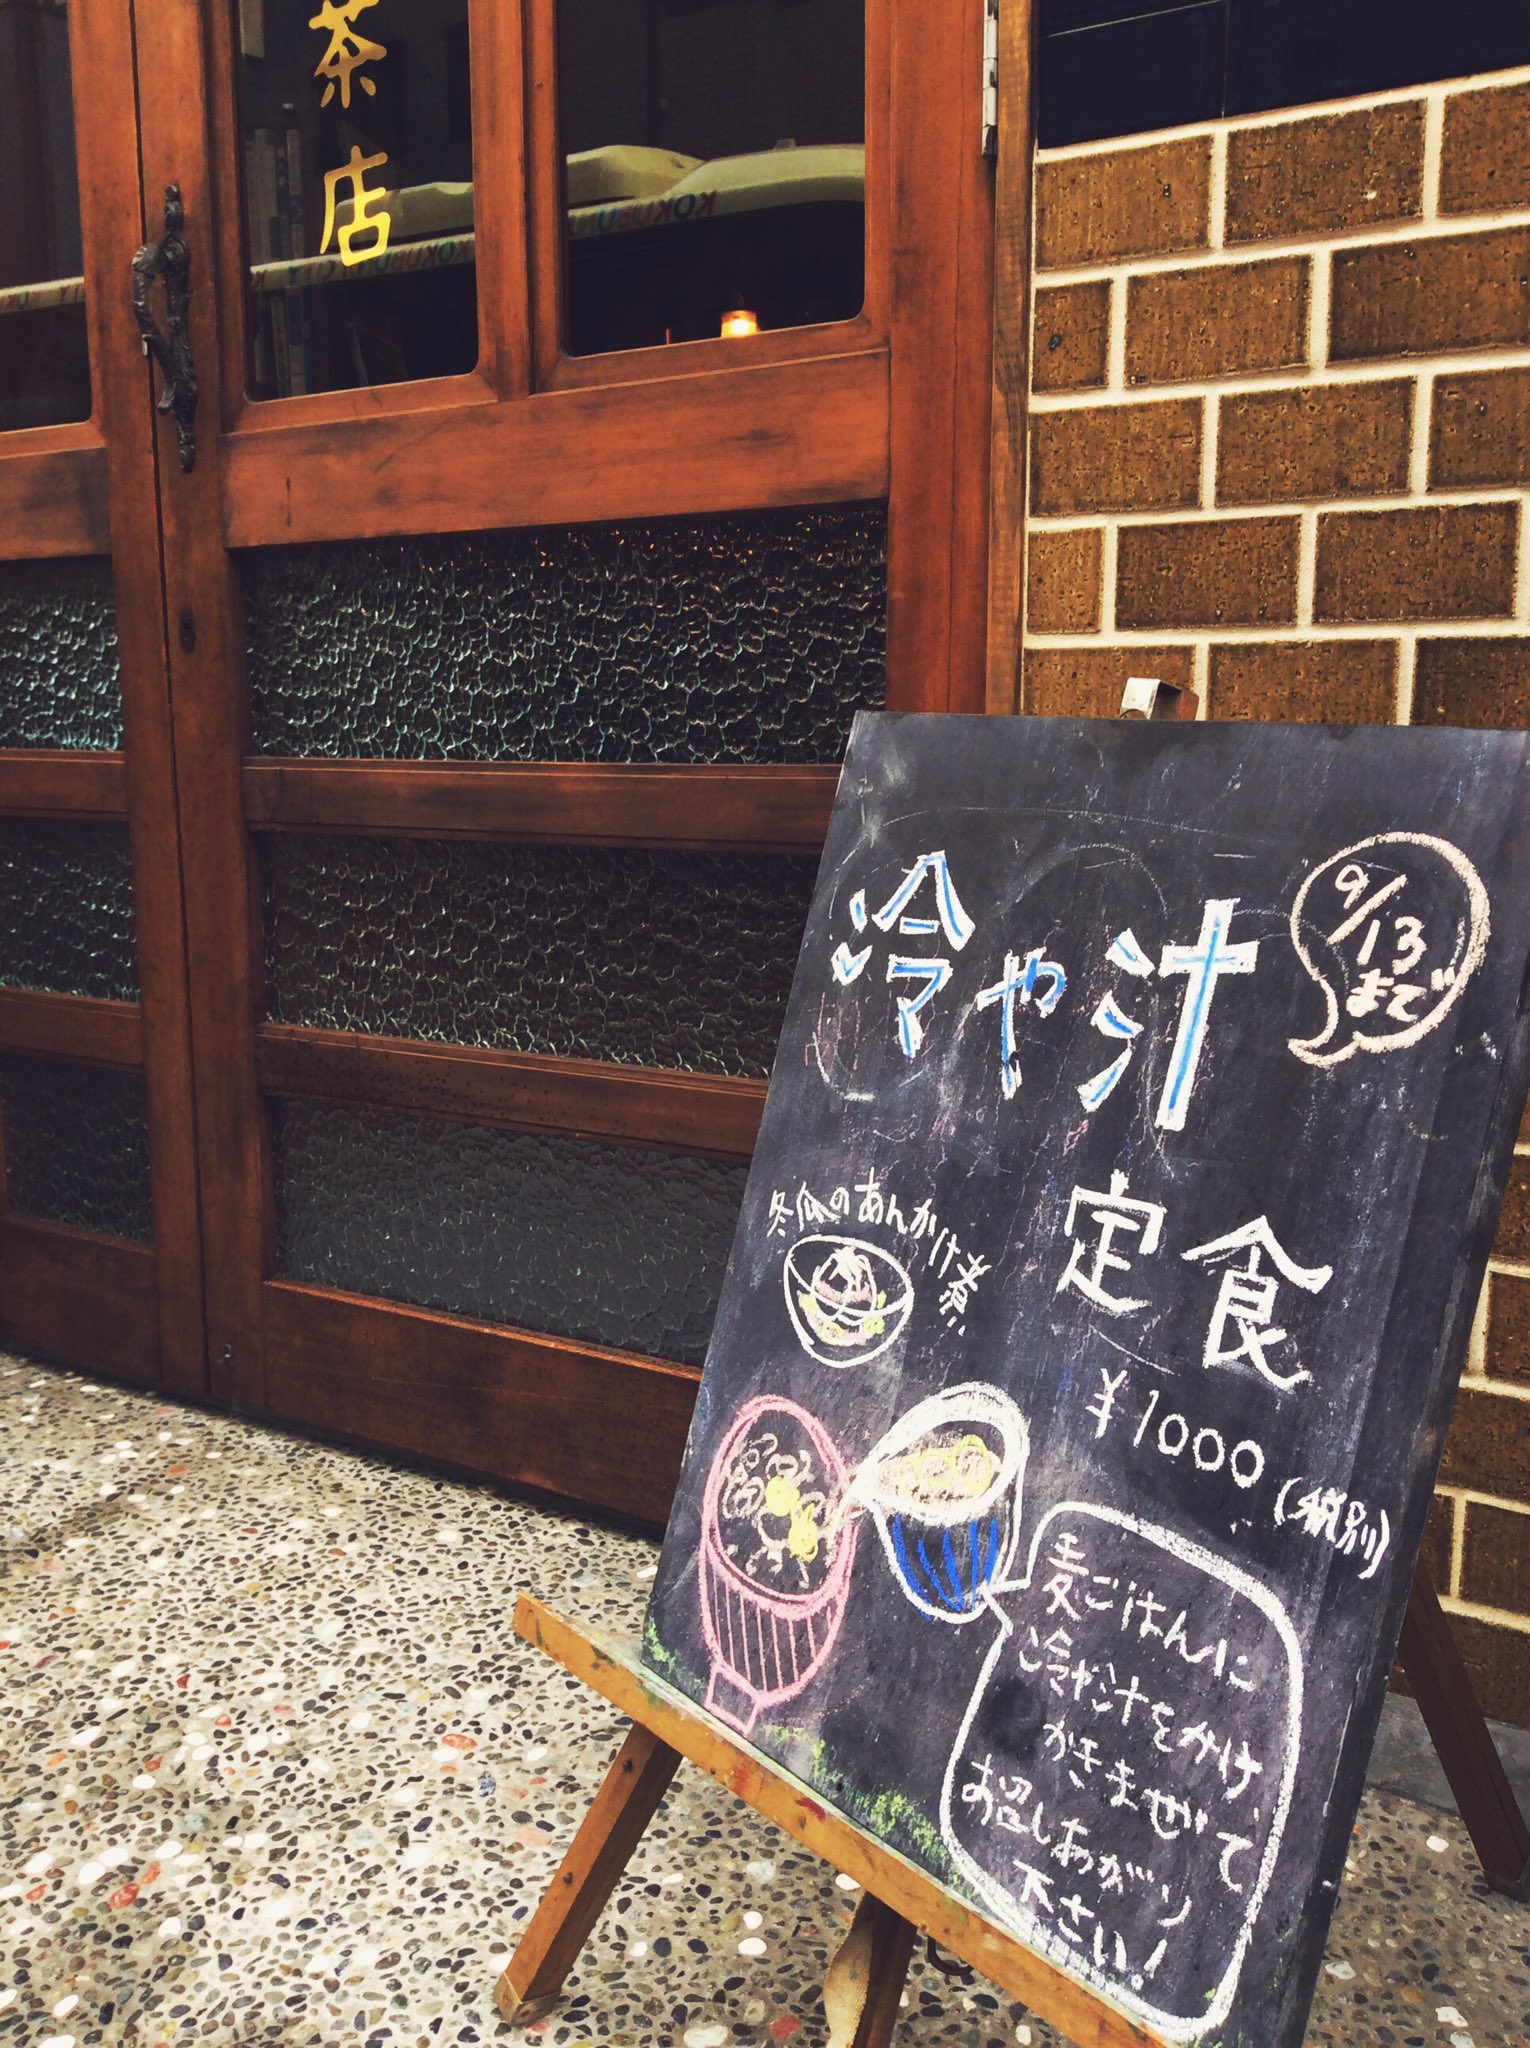 茶店
KOKUBU
冷や汁
9/13
まで
定食
¥1000(税別)
冬瓜のあんかけ煮
麦ごはんに
冷や汁をかけ、
かきまぜて
お召しあがり
下さい!